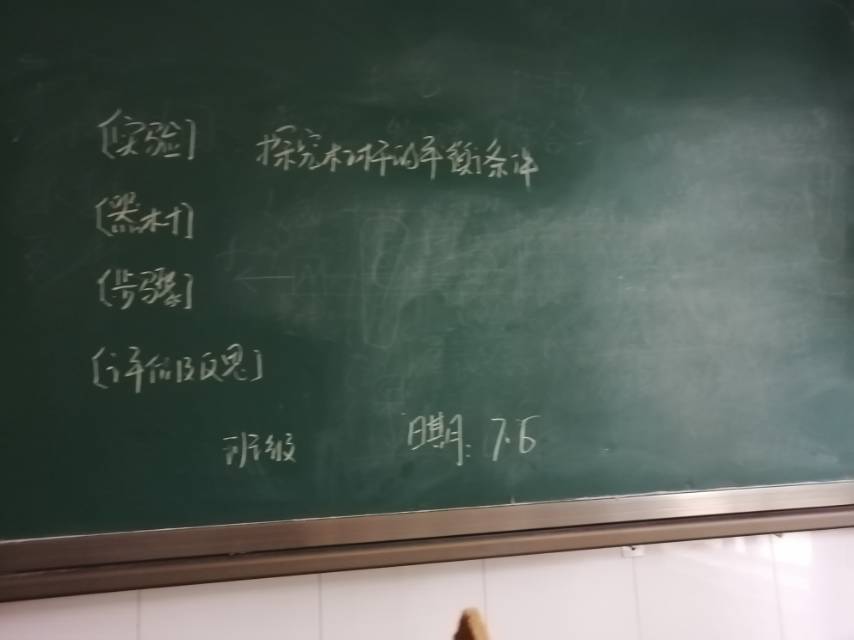 [实验] 探究杠杆的平衡条件
[器材]
[步骤]
[评估及反思]
班级 日期:7.6